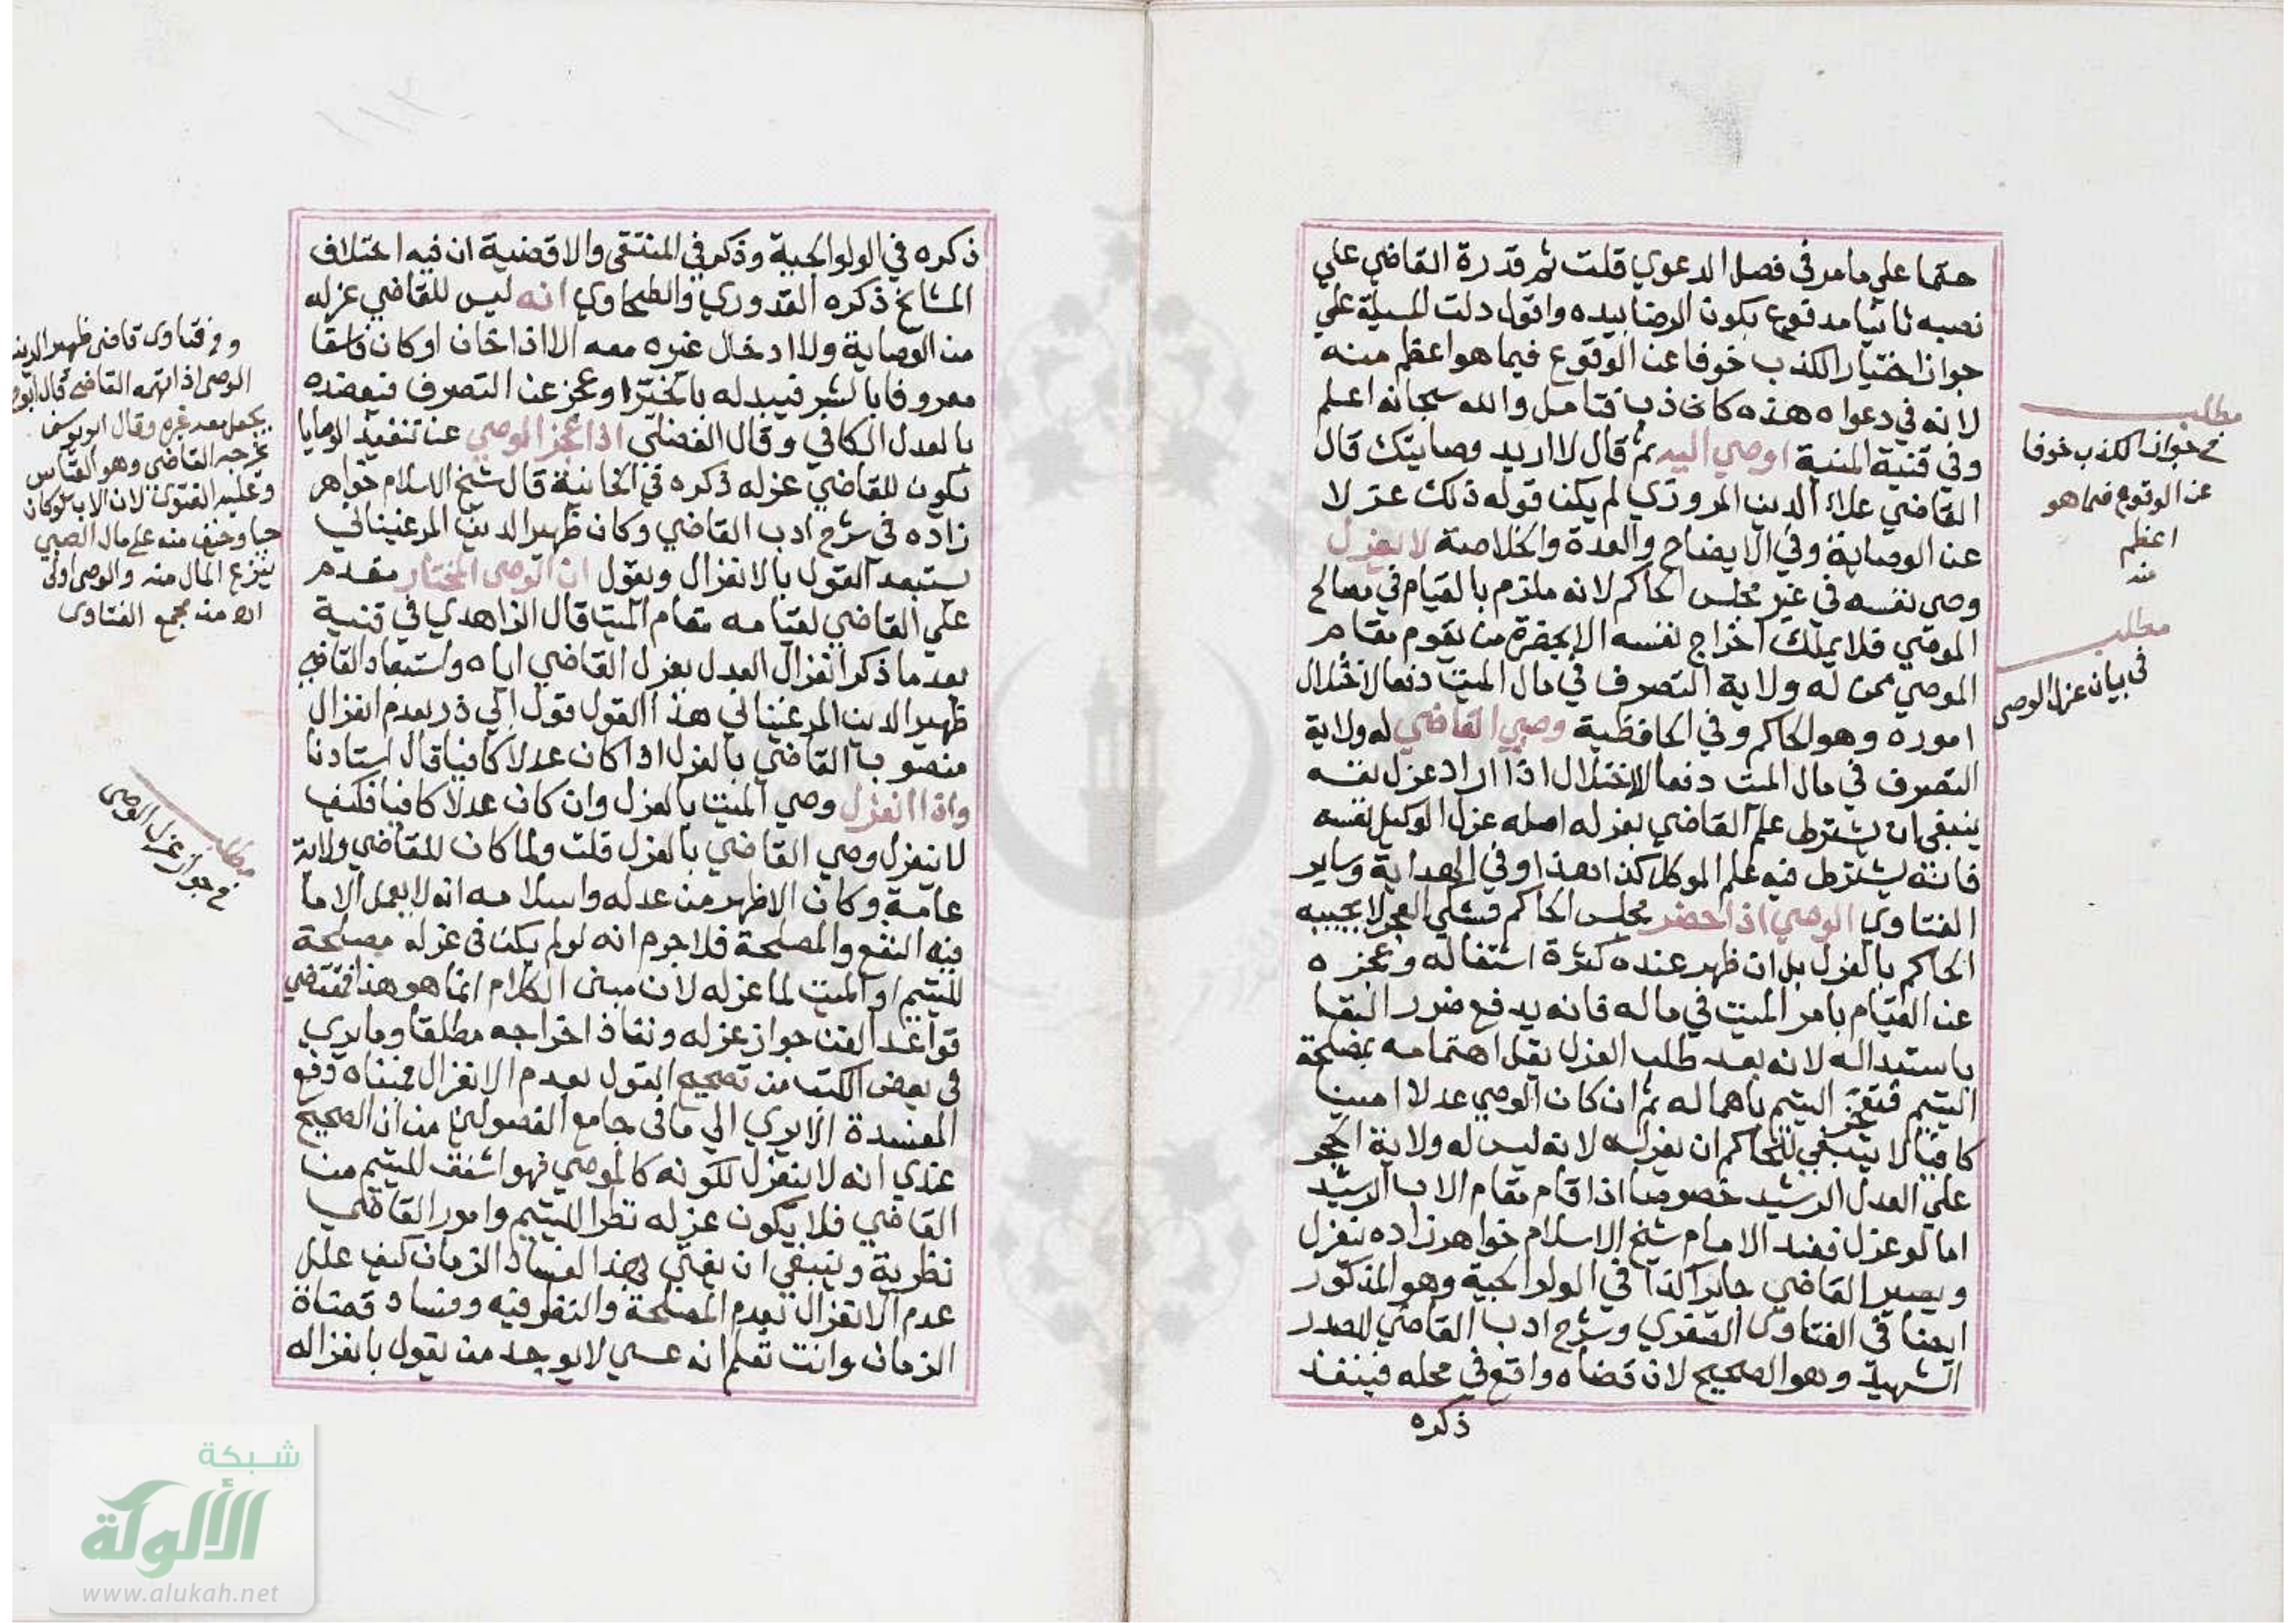 حتما علي ما مر في فصل الدعوي قلت ثم قدرة القاضي علي
نصبه ثانيا مدفوع بكون الرضا بيده واقول دلت المسيلة علي
جواز اختيار الكذب خوفا عن الوقوع فيما هو اعظم منه
لانه في دعواه هذه كاذب فتامل والله سبحانه اعلم
وفي قنية المنية اوصي اليه ثم قال لا اريد وصايتك قال
القاضي علاء الدين المروزي لم يكن قوله ذلك عزلا
عن الوصاية وفي الايضاح والعدة والخلاصة لا يعزل
وصي نفسه في غير مجلس الحاكم لانه ملتزم بالقيام في مصالح
الموصي فلا يملك اخراج نفسه الا بحضرة من يقوم مقام
الموصي ممن له ولاية التصرف في مال الميت دفعا لاختلال
اموره وهو الحاكم وفي الحافظية وصي القاضي له ولاية
التصرف في مال الميت دفعا للاختلال اذا اراد عزل نفسه
ينبغي ان يشترط علم القاضي بعزله اصله عزل الوكيل نفسه
فانه يشترط فيه علم الموكل كذا هذا وفي الهداية وساير
الفتاوي الوصي اذا حضر مجلس الحاكم فشكي العجز لا يجيبه
الحاكم بالعزل بل ان ظهر عنده كثرة اشتغاله وعجزه
عن القيام بامر الميت في ماله فانه يدفع ضرر البقا
باستبداله لانه بعد طلب العزل يقل اهتمامه بمصلحة
اليتيم فتعجز اليتيم باهماله ثم ان كان الوصي عدلا امينا
كافيا لا ينبغي للحاكم ان يعزله لانه ليس له ولاية الحجر
علي العدل الرشيد خصوصا اذا قام مقام الاب الرشيد
اما لو عزل فعند الامام شيخ الاسلام خواهرزاده ينعزل
ويصير القاضي جايرا كذا في الولوالجية وهو المذكور
ايضا في الفتاوي الصغري وشرح ادب القاضي للصدر
الشهيد وهو الصحيح لان قضاه واقع في محله فينفذ
ذكره
مطلب
في جواز الكذب خوفا
عن الوقوع فيما هو
اعظم
منه
مطلب
في بيان عزل الوصي
ذكره في الولوالجية وذكر في المنتقي والاقضية ان فيه اختلاف
المشايخ ذكره القدوري والطحاوي انه ليس للقاضي عزله
من الوصاية ولا ادخال غيره معه الا اذا خان او كان فاسقا
معروفا بالشر فيبدله بالخير او عجز عن التصرف فيعضده
بالعدل الكافي وقال الفضلي اذا عجز الوصي عن تنفيذ الوصايا
يكون للقاضي عزله ذكره في الخانية قال شيخ الاسلام خواهر
زاده في شرح ادب القاضي وكان ظهير الدين المرغيناني
يستبعد القول بالانعزال ويقول ان الوصي المختار مقدم
علي القاضي لقيامه مقام الميت قال الزاهدي في قنية
بعد ما ذكر انعزال العدل بعزل القاضي اياه واستبعاد القاضي
ظهير الدين المرغيناني هذا القول قول ابي ذر بعدم انعزال
منصوب القاضي بالعزل اذا كان عدلا كافيا قال استادنا
واذا انعزل وصي الميت بالعزل وان كان عدلا كافيا فكيف
لا ينعزل وصي القاضي بالعزل قلت ولما كان للقاضي ولاية
عامة وكان الاظهر من عدله واسلامه انه لا يعمل الا ما
فيه النفع والمصلحة فلا جرم انه لو لم يكن في عزله مصلحة
لليتيم او الميت لما عزله لان مبني الكلام انما هو هذا فمقتضي
قواعد الفن جواز عزله ونفاذ اخراجه مطلقا وما يري
في بعض الكتب من تصحيح القول بعدم الانعزال فمبناه دفع
المفسدة الا يري الي ما في جامع الفصولين من ان الصحيح
عندي انه لا ينعزل لكونه كالموصي فهو اشفق لليتيم من
القاضي فلا يكون عزله نظرا لليتيم وامور القاضي
نظرية وينبغي ان يفتي بهذا الفساد الزمان كيف علل
عدم الانعزال بعدم المصلحة والنظر فيه وفساد قضاة
الزمان وانت تعلم انه عسي لا يوجد من يقول بانعزاله
وفي فتاوى قاضي ظهير الدين
الوصي اذا اتهمه القاضي قال ابو
يجعل معه غيره وقال ابو يوسف
يخرجه القاضي وهو القياس
وعليه الفتوى لان الاب لو كان
حيا وخيف منه على مال الصبي
ينزع المال منه والوصي اولى
اه من مجمع الفتاوى
مطلب
في جواز عزل الوصي
شبكة
الألوكة
www.alukah.net